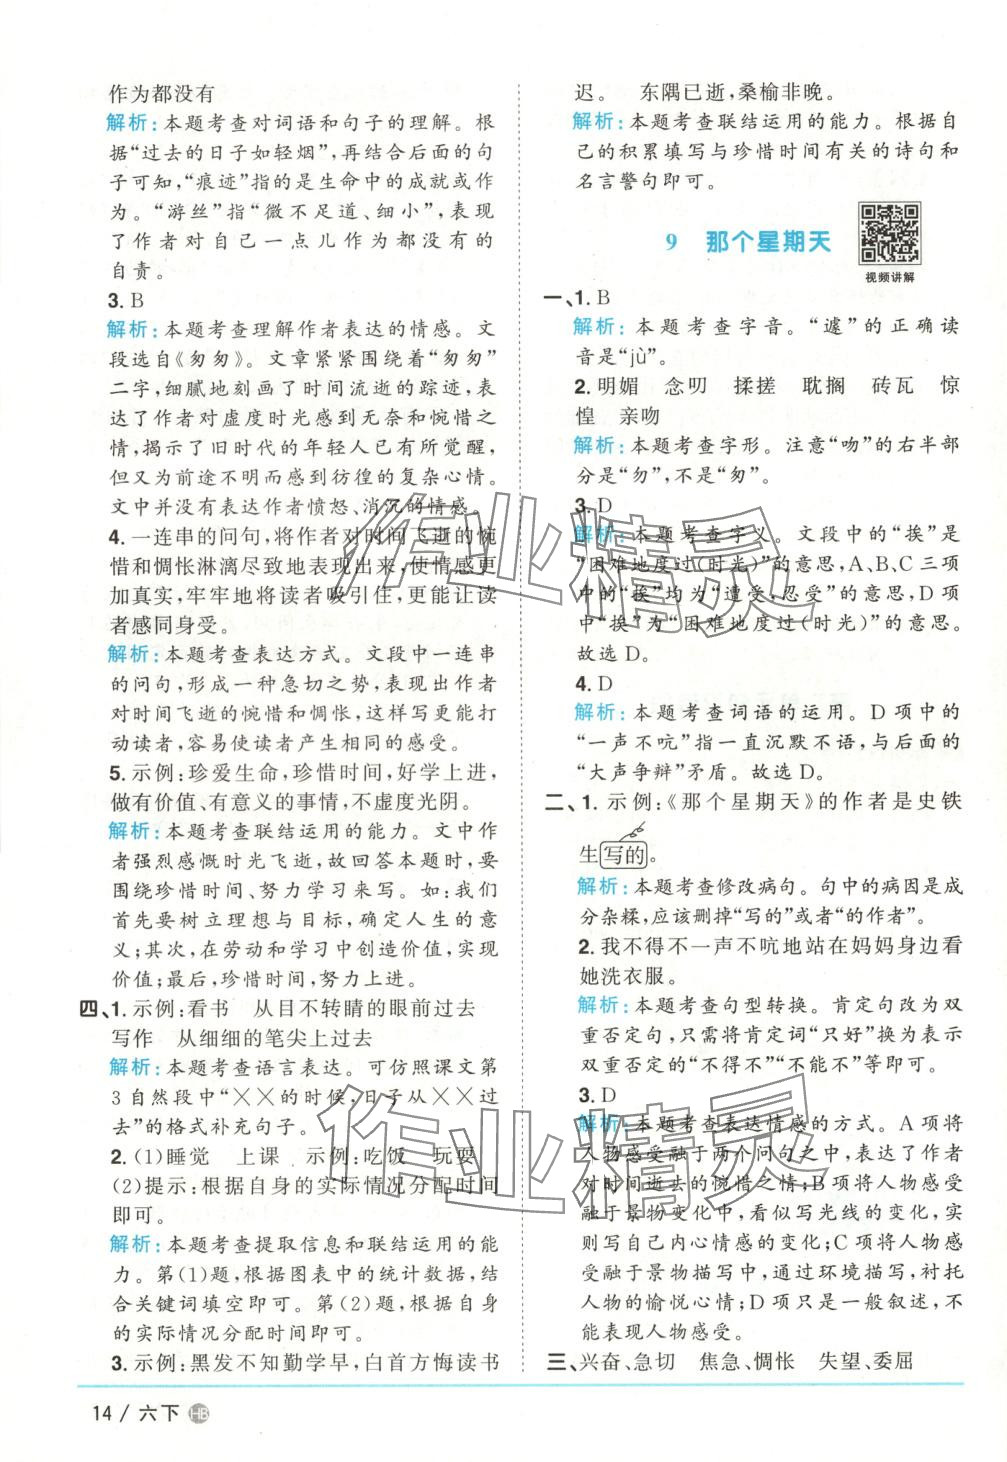 作为都没有
解析:本题考查对词语和句子的理解。根
据“过去的日子如轻烟”,再结合后面的句
子可知,“痕迹”指的是生命中的成就或作
为。“游丝”指“微不足道、细小”,表现
了作者对自己一点儿作为都没有的
自责。
3. B
解析:本题考查理解作者表达的情感。文
段选自《匆匆》。文章紧紧围绕着“匆匆”
二字,细腻地刻画了时间流逝的踪迹,表
达了作者对虚度时光感到无奈和惋惜之
情,揭示了旧时代的年轻人已有所觉醒,
但又为前途不明而感到彷徨的复杂心情。
文中并没有表达作者愤怒、消沉的情感。
4. 一连串的问句,将作者对时间飞逝的惋
惜和惆怅淋漓尽致地表现出来,使情感更
加真实,牢牢地将读者吸引住,更能让读
者感同身受。
解析:本题考查表达方式。文段中一连串
的问句,形成一种急切之势,表现出作者
对时间飞逝的惋惜和惆怅,这样写更能打
动读者,容易使读者产生相同的感受。
5. 示例:珍爱生命,珍惜时间,好学上进,
做有价值、有意义的事情,不虚度光阴。
解析:本题考查联结运用的能力。文中作
者强烈感慨时光飞逝,故回答本题时,要
围绕珍惜时间、努力学习来写。如:我们
首先要树立理想与目标,确定人生的意
义;其次,在劳动和学习中创造价值,实现
价值;最后,珍惜时间,努力上进。
四、1. 示例:看书 从目不转睛的眼前过去
写作 从细细的笔尖上过去
解析:本题考查语言表达。可仿照课文第
3自然段中“××的时候,日子从××过
去”的格式补充句子。
2. (1)睡觉 上课 示例:吃饭 玩耍
(2)提示:根据自身的实际情况分配时间
即可。
解析:本题考查提取信息和联结运用的能
力。第(1)题,根据图表中的统计数据,结
合关键词填空即可。第(2)题,根据自身
的实际情况分配时间即可。
3. 示例:黑发不知勤学早,白首方悔读书
迟。 东隅已逝,桑榆非晚。
解析:本题考查联结运用的能力。根据自
己的积累填写与珍惜时间有关的诗句和
名言警句即可。
9 那个星期天
视频讲解
一、1. B
解析:本题考查字音。“遽”的正确读
音是“jù”。
2. 明媚 念叨 揉搓 耽搁 砖瓦 惊
惶 亲吻
解析:本题考查字形。注意“吻”的右半部
分是“勿”,不是“匆”。
3. D
解析:本题考查字义。文段中的“挨”是
“困难地度过(时光)”的意思,A、B、C三项
中的“挨”均为“遭受,忍受”的意思,D项
中“挨”为“困难地度过(时光)”的意思。
故选D。
4. D
解析:本题考查词语的运用。D项中的
“一声不吭”指一直沉默不语,与后面的
“大声争辩”矛盾。故选D。
二、1. 示例:《那个星期天》的作者是史铁
生写的。
解析:本题考查修改病句。句中的病因是成
分杂糅,应该删掉“写的”或者“的作者”。
2. 我不得不一声不吭地站在妈妈身边看
她洗衣服。
解析:本题考查句型转换。肯定句改为双
重否定句,只需将肯定词“只好”换为表示
双重否定的“不得不”“不能不”等即可。
3. D
解析:本题考查表达情感的方式。A项将
人物感受融于两个问句之中,表达作者
对时间逝去的惋惜之情;B项将人物感受
融于景物变化中,看似写光线的变化,实
则写自己内心情感的变化;C项将人物感
受融于景物描写中,通过环境描写,衬托
人物的愉悦心情;D项只是一般叙述,不
能表现人物感受。
三、兴奋、急切 焦急、惆怅 失望、委屈
14 / 六下 HB
作业精灵
作业精灵